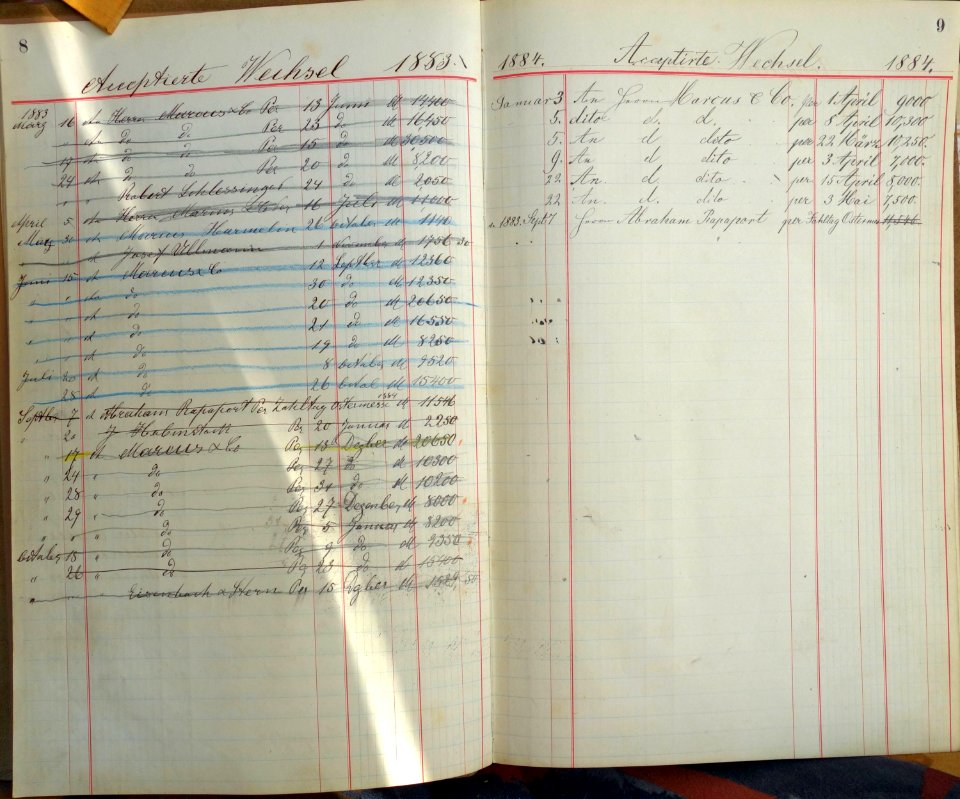 8
Acceptierte Wechsel 1883.
1883
März 16 An Herrn Marcus & Co Per 13 Junni M 14400
" " An do do Per 23 do M 16450
" " do do Per 15 do M 30500
" 17 M do do Per 20 do M 8200
" 24 M Robert Schlessinger 24 do M 2050
April 5 M Herrn Marcus & Co 16 Juli M 11000
Marz 30 M Marcus Harmelin 26 octaber M 1146
" " M Josef Ullmann 1 November M 1756 50
Junni 15 M Marcus & Co 12 Septber M 12360
" " M do 30 do M 12350
" " M do 20 do M 20650
" " M do 21 do M 16550
" " M do 19 do M 8250
Juli 20 M do 8 octaber M 9520
" 28 M do 26 octab M 15400
Septber 7 M Abraham Rapaport Per Zahltag Ostermesse 1884 M 11546
" 20 J Halmstadt Per 20 Januar M 2250
" 17 M Marcus & Co Per 13 Dezber M 20650
" 24 " do Per 27 do M 10300
" 28 " do Per 31 do M 10200
" 29 " do Per 27 Dezember M 8000
" " " do Per 5 Januar M 8200
octaber 18 " do Per 9 do M 9350
" 26 " do Per 23 do M 15400
" Eisenbach & Stern Per 15 Dzber M 1529, 50
9
1884. Acceptirte Wechsel. 1884.
Januar 3 An Herrn Marcus & Co. per 1 April 9000
5. dito d. d. per 8 April 10,300
5. An d dito per 22 März 10,250.
9. An d dito per 3 April 7,000.
22 An d, dito per 15 April 8,000.
22 An d. dito per 3 Mai 7,500.
1883. Sept 7 Herrn Abraham Rapaport per Zahltag Ostermesse 11,546